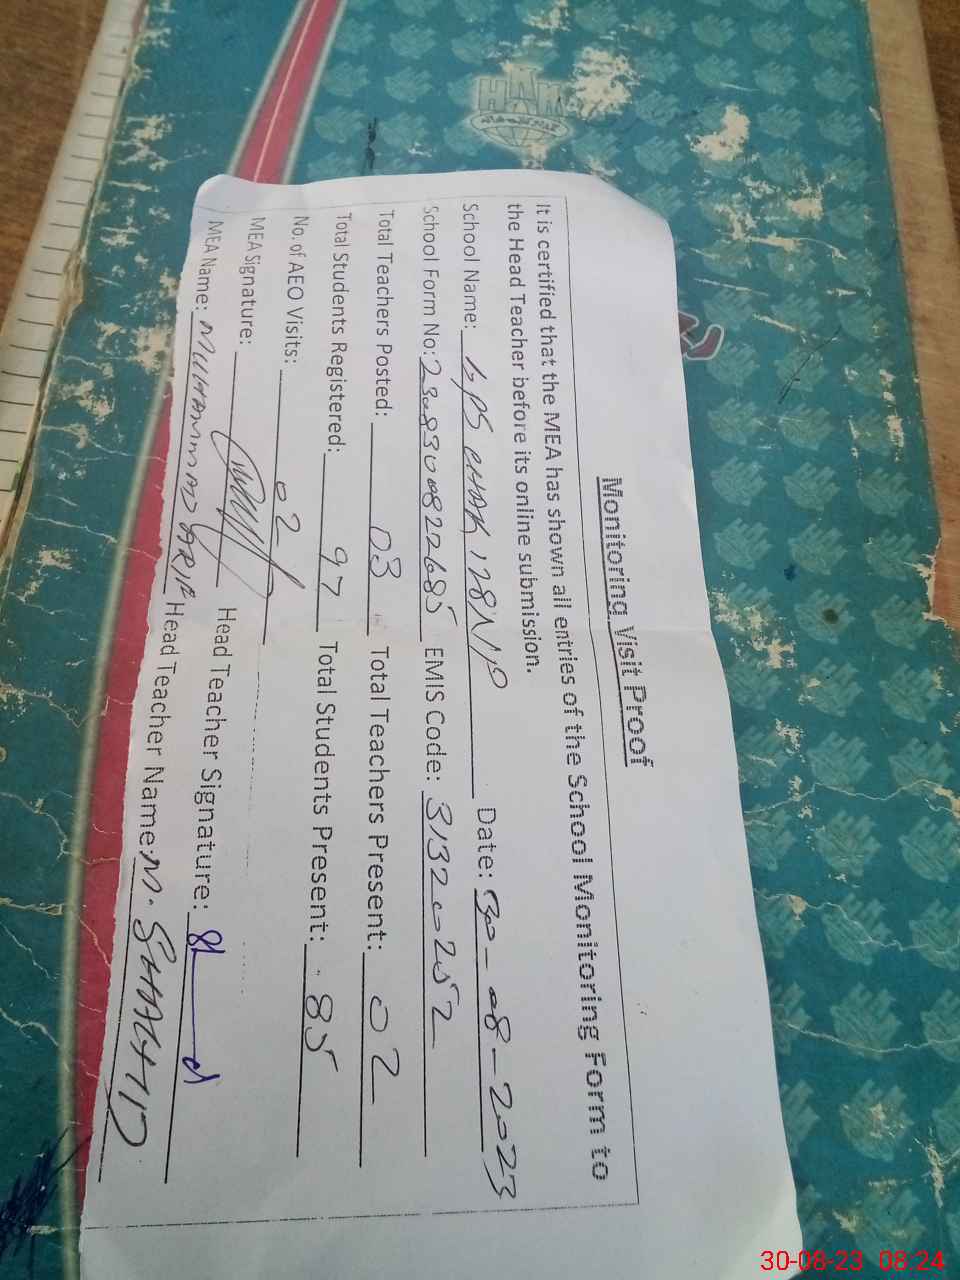 HAMD
Monitoring Visit Proof
It is certified that the MEA has shown all entries of the School Monitoring Form to
the Head Teacher before its online submission.
School Name: GPS CHAK 128 NP Date: 30-08-2023
School Form No: EMIS Code: 31320252
Total Teachers Posted: 03 Total Teachers Present: 02
Total Students Registered: 97 Total Students Present: 85
No. of AEO Visits: 02
MEA Signature: Head Teacher Signature:
MEA Name: MUHAMMAD ARIF Head Teacher Name: M. SHAHID
30-08-23 08:24